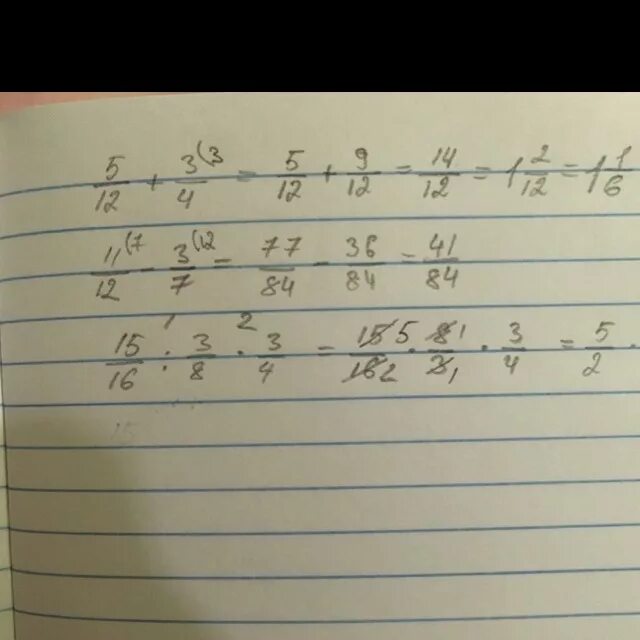 5/12 + 3(3/4 = 5/12 + 9/12 = 14/12 = 1 2/12 = 1 1/6
11(7/12 - 3(12/7 = 77/84 - 36/84 = 41/84
1 2
15/16 : 3/8 · 3/4 = 15 5/16 2 · 8 1/3 1 · 3/4 = 5/2 ·